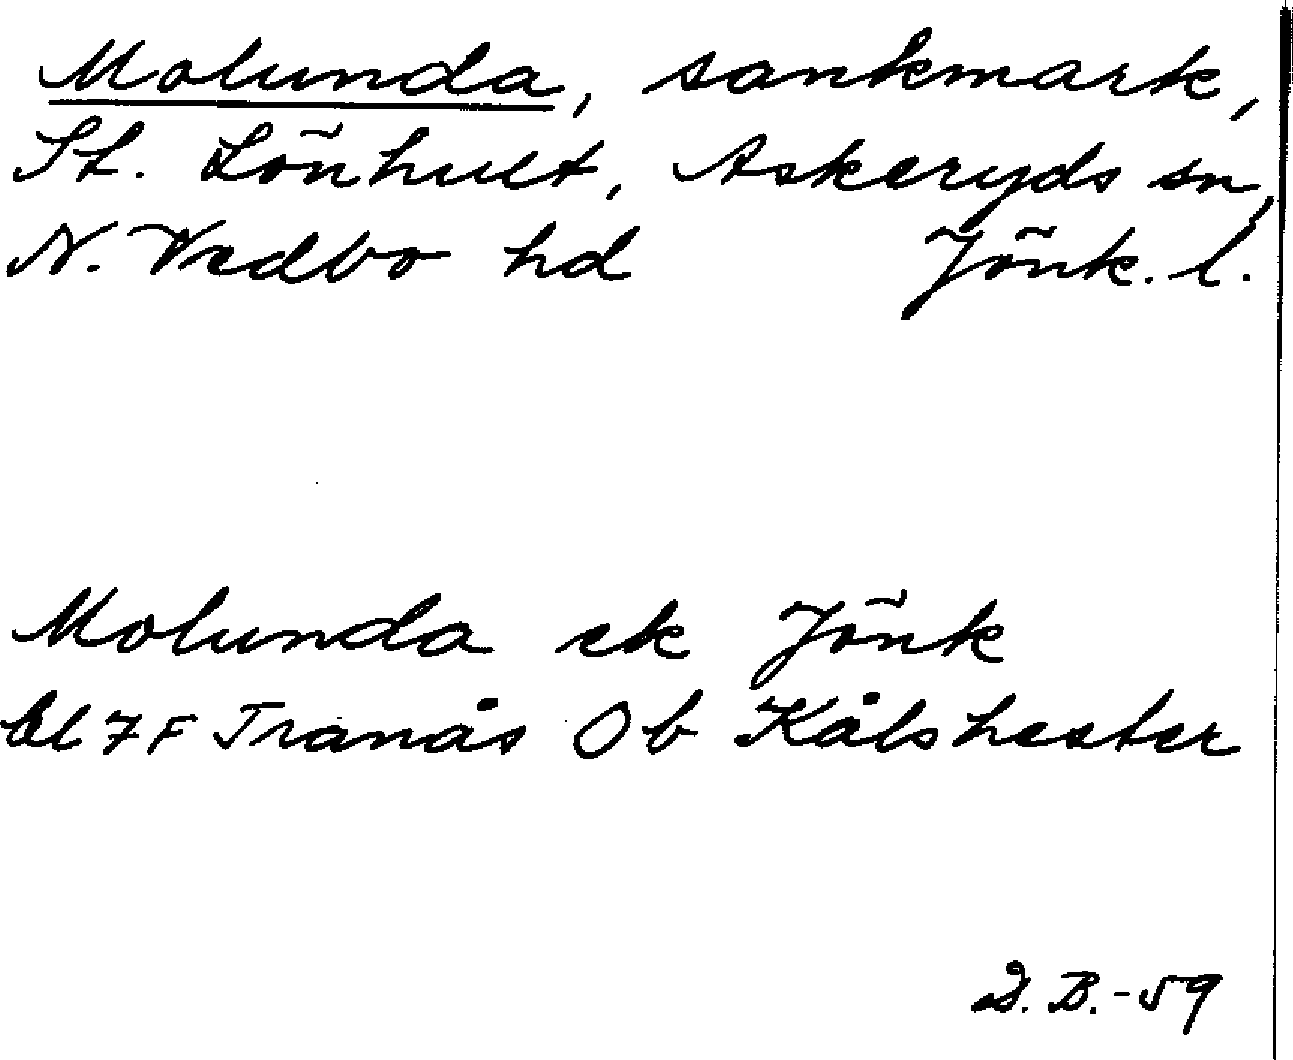 Molunda, sankmark,
St. Lönhult, Askeryds sn,
N. Vedbo hd Jönk. l.
Molunda ek Jönk
bl 7F Tranås Ob Kålshester
D. B. -59